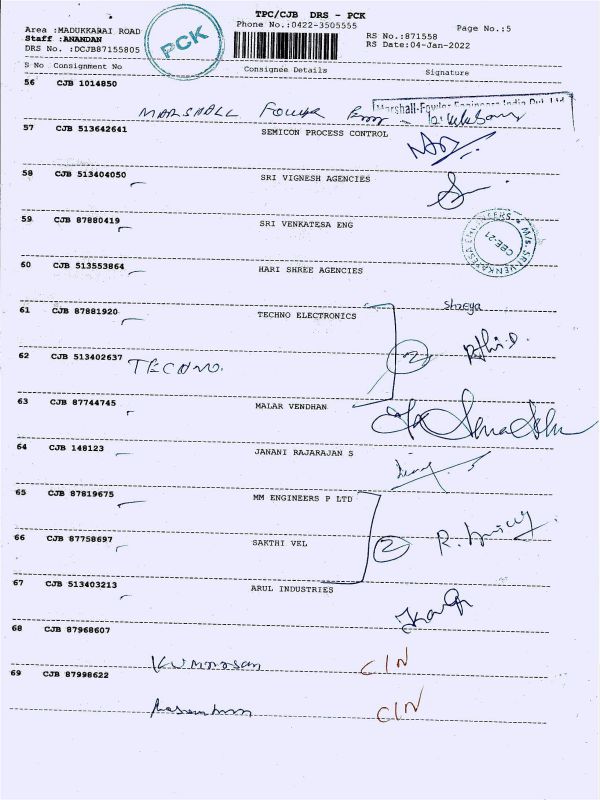 TPC/CJB DRS - PCK
Phone No.:0422-3505555
Page No.:5
Area :MADUKKARAI ROAD
Staff :ANANDAN
DRS No. :DCJB87155805
PCK
RS No.:871558
RS Date:04-Jan-2022
S No Consignment No Consignee Details Signature
56 CJB 1014850
MARSHALL Fowler
Marshall-Fowler Engineers India Pvt. Ltd
57 CJB 513642641 SEMICON PROCESS CONTROL
58 CJB 513404050 SRI VIGNESH AGENCIES
59 CJB 87880419 SRI VENKATESA ENG
M/s. SRI VENKATESA ENGINEERS
CBE-21
60 CJB 513553864 HARI SHREE AGENCIES
Shreya
61 CJB 87881920 TECHNO ELECTRONICS
2
62 CJB 513402637
TECHNO.
63 CJB 87744745 MALAR VENDHAN
64 CJB 148123 JANANI RAJARAJAN S
65 CJB 87819675 MM ENGINEERS P LTD
66 CJB 87758697 SAKTHI VEL
2
67 CJB 513403213 ARUL INDUSTRIES
68 CJB 87968607
Kumarasan CIN
69 CJB 87998622
CIN